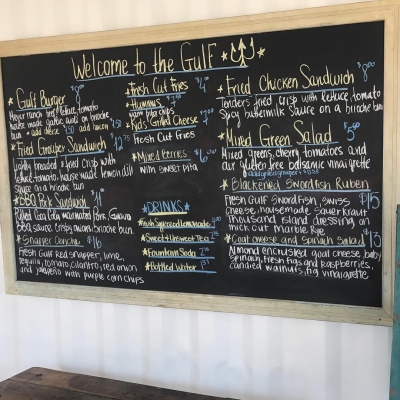 Welcome to the Gulf
Gulf Burger $8.00
Meyer ranch beef, lettuce, tomato
house made garlic aioli on brioche
bun add cheese .50 add bacon
Fried Grouper Sandwich 12.75
Lightly breaded & fried crisp with
lettuce, tomato, house made lemon dill
sauce on a brioche bun
BBQ Pork Sandwich $11
Coca Cola marinated Pork, Guava
BBQ sauce, crispy onions, brioche bun
Snapper Ceviche $16
Fresh Gulf red snapper, lime,
tequila, tomato, cilantro, red onion
and jalapeño with purple corn chips
Fresh Cut Fries $4
Hummus
warm pita chips
Kids Grilled Cheese
Fresh Cut Fries
Mixed Berries $6
with sweet pita
DRINKS
Fresh Squeezed Lemonade
Sweet & Unsweet Tea
Fountain Soda
Bottled Water
Fried Chicken Sandwich $8.00
Tenders fried crisp with lettuce, tomato
Spicy buttermilk sauce on a brioche bun
Mixed Green Salad
Mixed greens, cherry tomatoes and
our gluten free balsamic vinaigrette
Blackened Swordfish Ruben $15
Fresh Gulf Swordfish, swiss
cheese, housemade sauerkraut
thousand island dressing on
thick cut marble rye
Goat cheese and spinach Salad $13
Almond encrusted goat cheese, baby
spinach, fresh figs and raspberries,
candied walnuts, fig vinaigrette